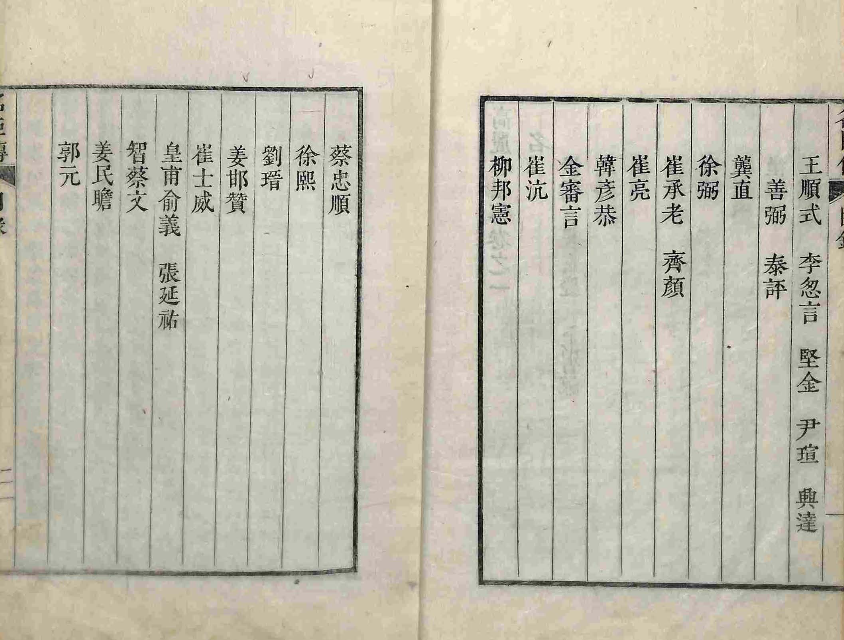 王順式　李悤言　堅金　尹瑄　興達
善弼　泰評
龔直
徐弼
崔承老　齊顏
崔亮
韓彦恭
金審言
崔沆
柳邦憲
蔡忠順
徐熙
劉瑨
姜邯贊
崔士威
皇甫俞義　張延祐
智蔡文
姜民瞻
郭元
名臣傳　目錄